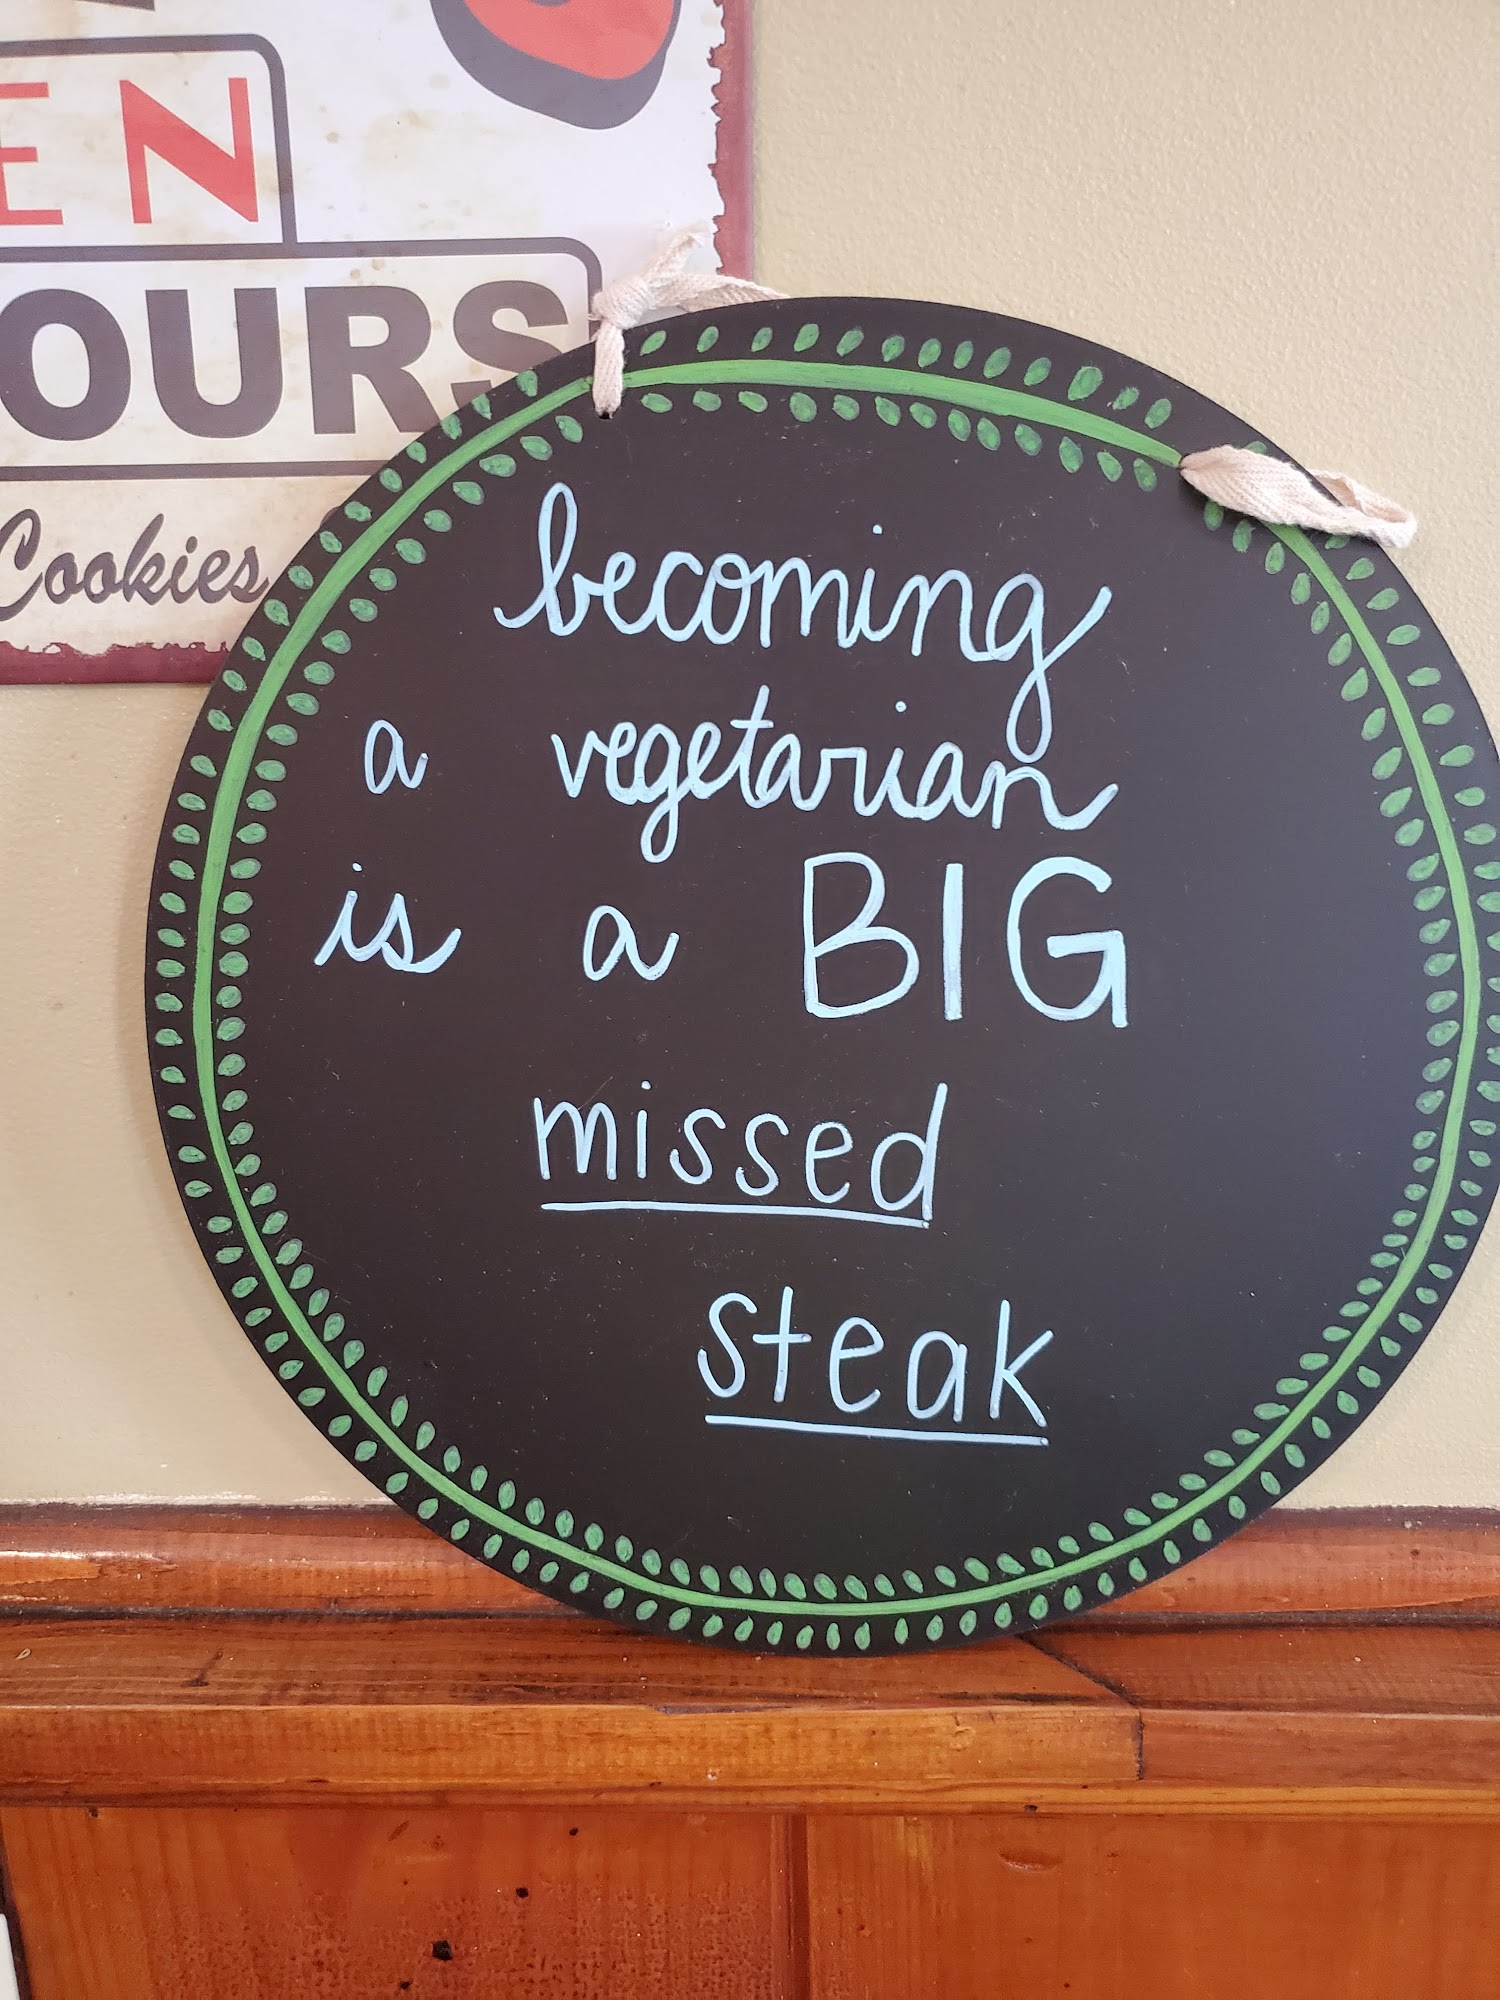 EN
OURS
Cookies
becoming
a vegetarian
is a BIG
missed
steak